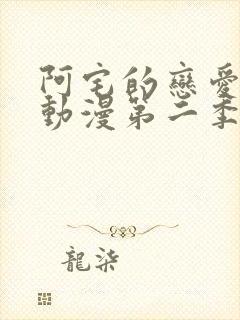 阿宅的戀愛
動漫第二季
龍柒